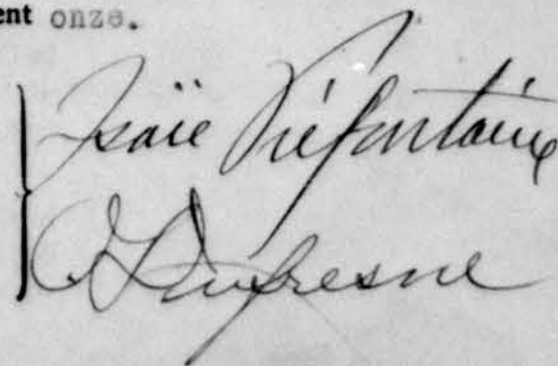 ent onze.
Isaïe Préfontaine
O Dufresne